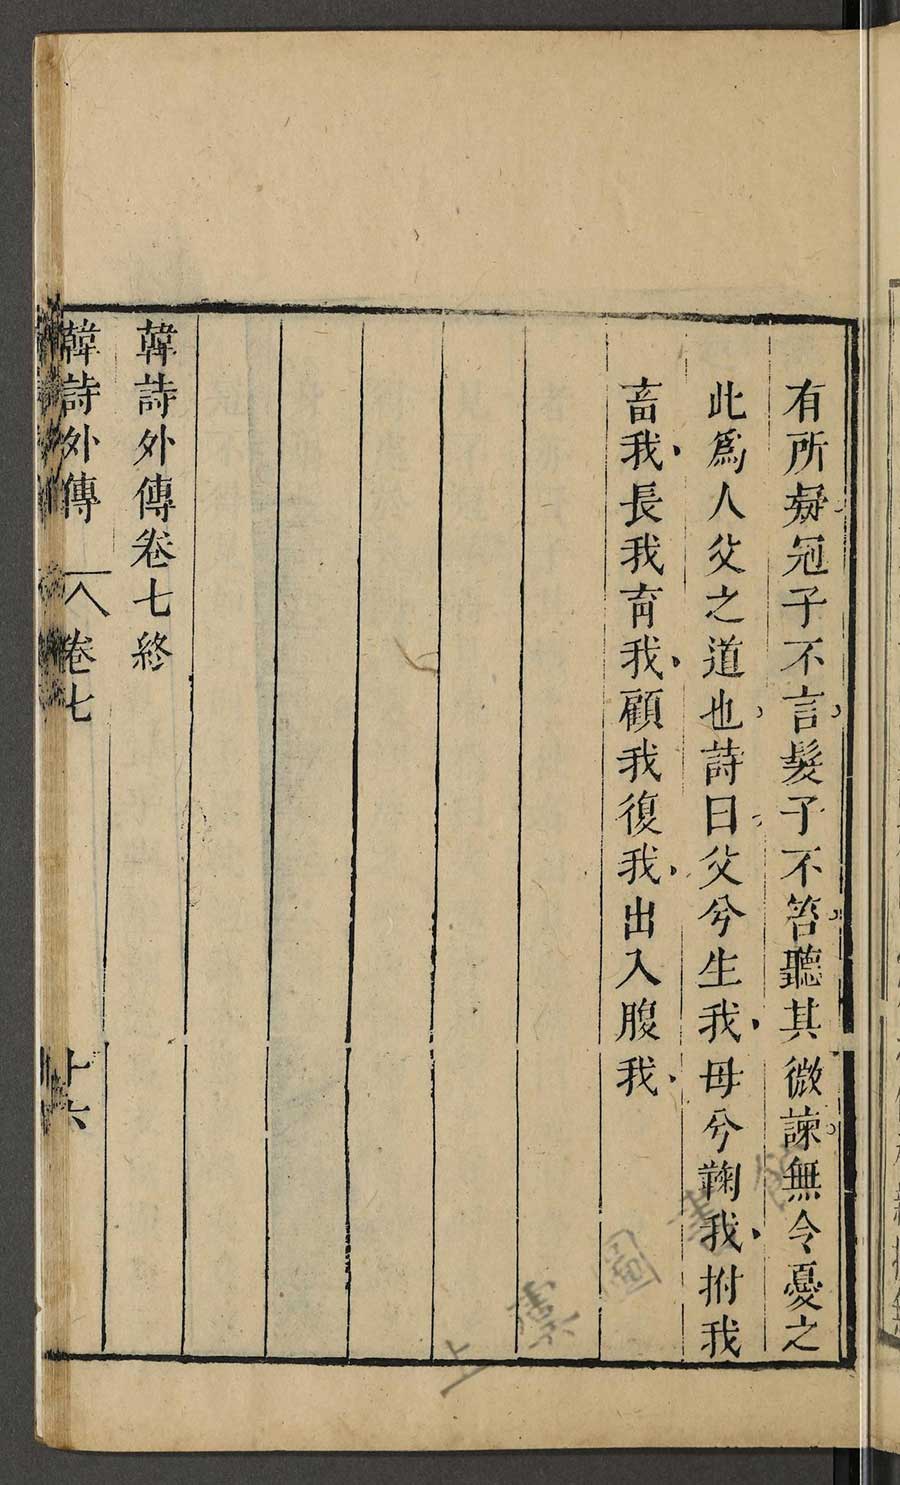 有所疑冠子不言髮子不笞聽其微諫無令憂之
此爲人父之道也詩曰父兮生我母兮鞠我拊我
畜我長我育我顧我復我出入腹我
韓詩外傳卷七終
韓詩外傳 卷七 十六
上虞圖書館